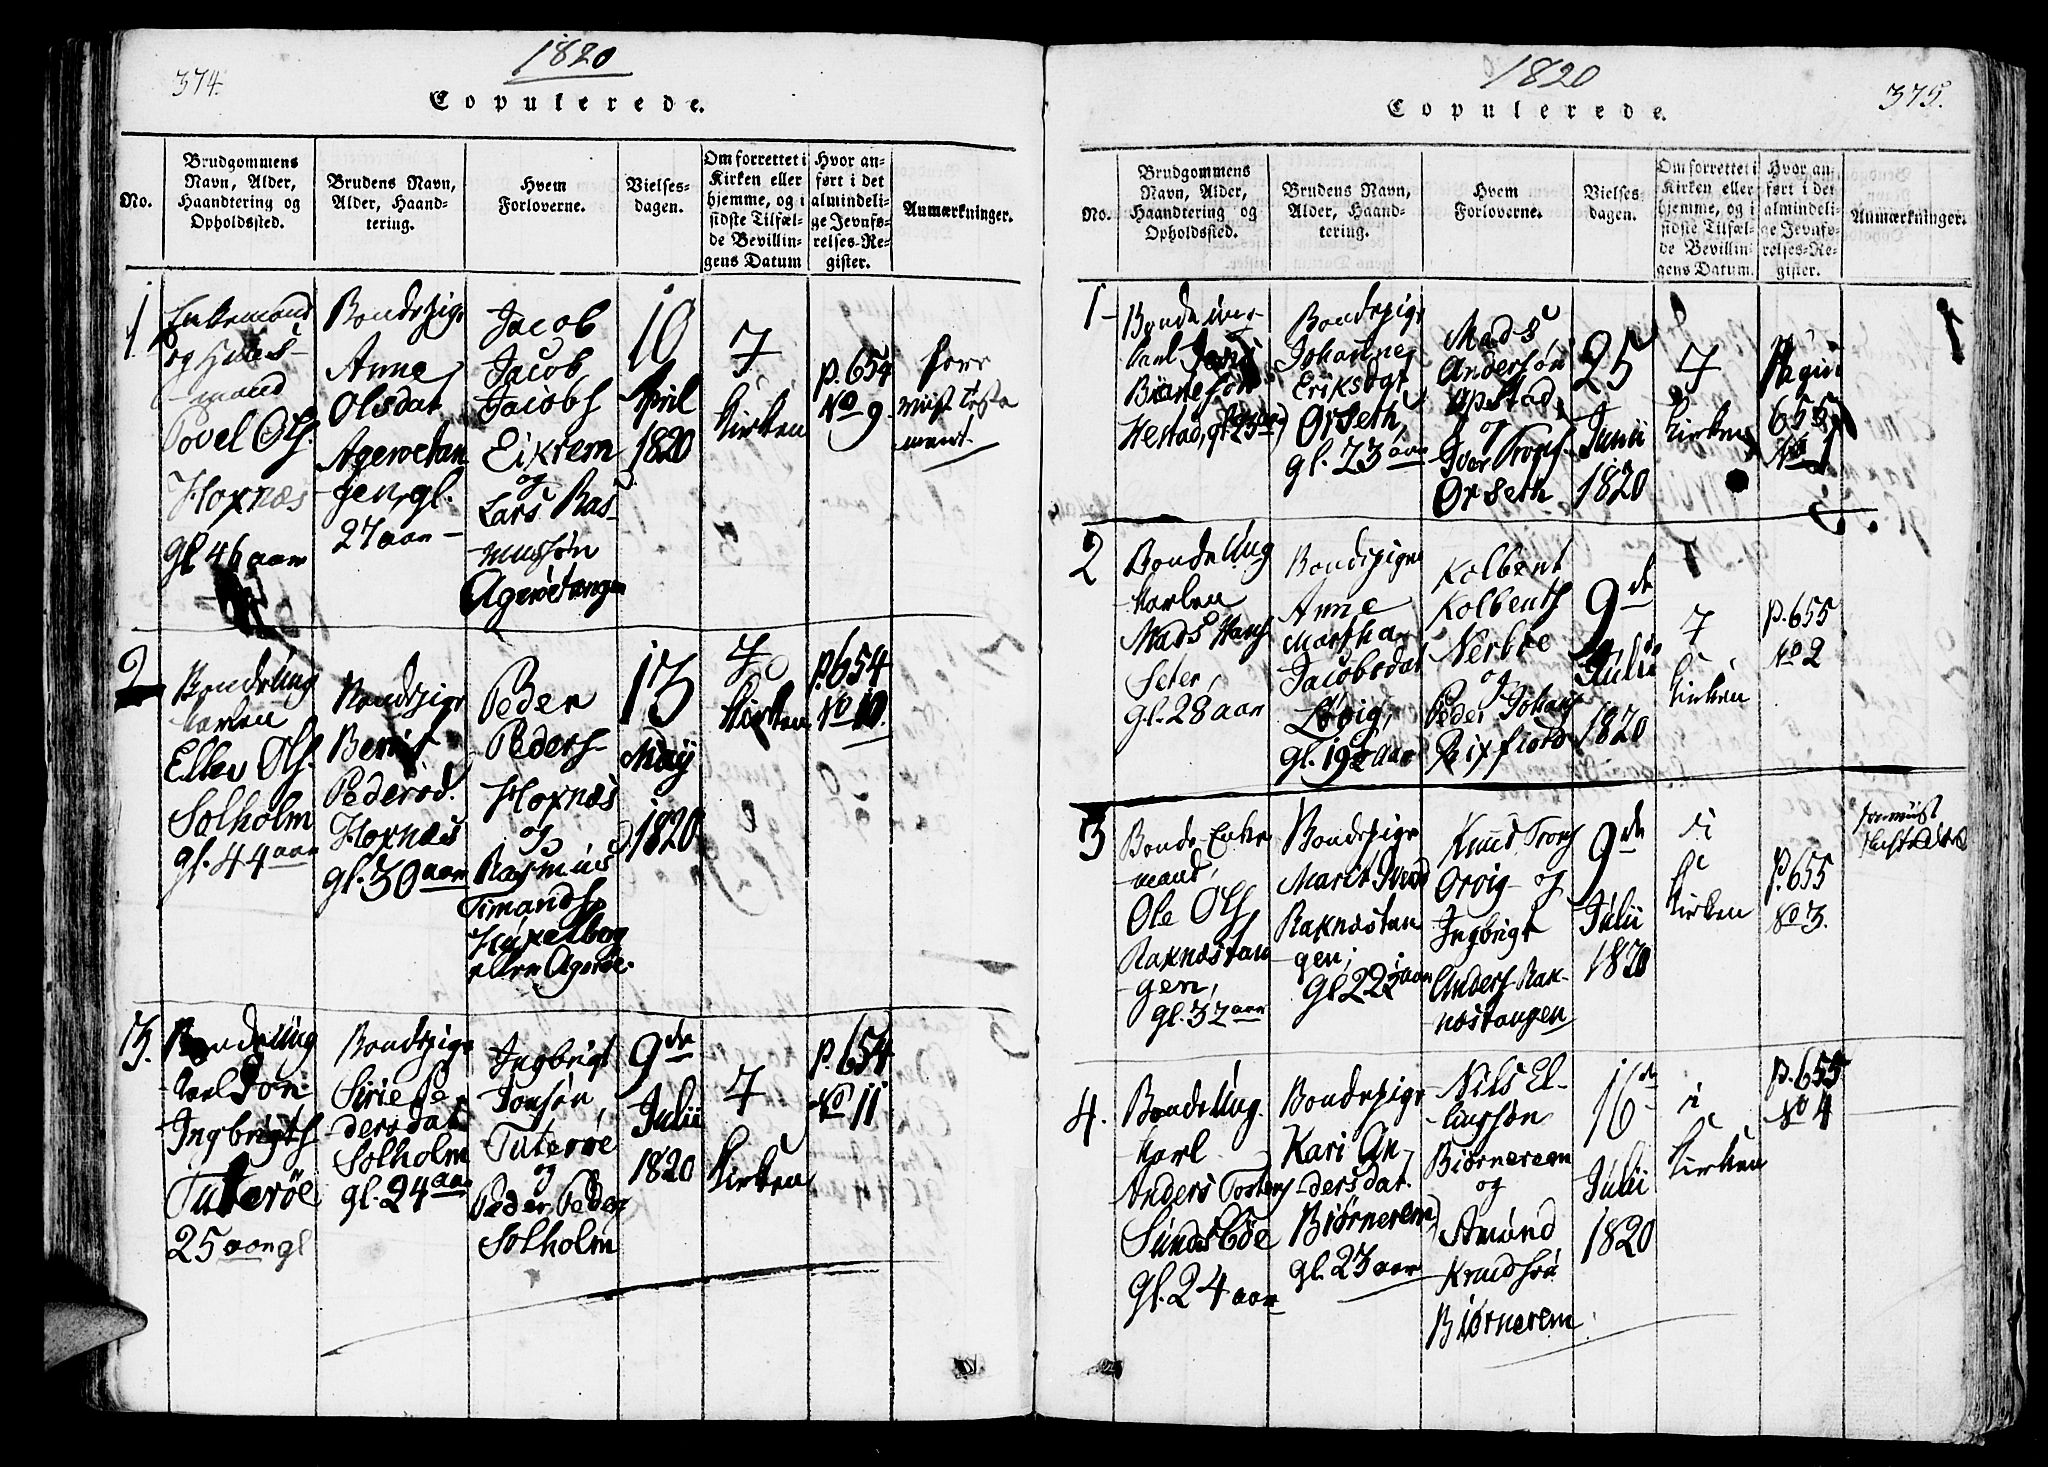 374.
1820
Copulerede.
No.
Brudgommens
Navn, Alder,
Haandtering og
Opholdssted.
Brudens Navn,
Alder, Haand-
tering.
Hvem
Forloverne.
Vielses-
dagen.
Om forrettet i
Kirken eller
hjemme, og i
sidste Tilfæl-
de Bevillin-
gens Datum
Hvor an-
ført i det
almindeli-
ge Jevnfø-
relses-Re-
gister.
Anmærkninger.
1.
Enkemand
og
mand
Povel Ols.
Hoxnæs
gl. 46 aar
Bondepige
Anne
Olsdat
Agerøetan
gen, gl.
27 aar
Jacob
Jacob
Jacobs
Eikrem
og
Lars Ras-
mussøn
Agerøetangen
10
April
1820
i
Kirken
p. 654
No 9.
2
BondeUng
karlen
Ellev Ols.
Solholm
gl. 44 aar
Bondepige
Berit
Pedersd.
Hoxnæs
gl. 30 aar
Peder
Peders
Hoxnæs
og
Rasmus
Timands
ellen Agerøe.
13
Maij
1820
i
Kirken
p. 654
No 10.
3.
BondeUng
karl Jon
Ingbrigts
Tuterøe
25 aar gl
Bondepige
Sirie Pe
dersdat
Solholm
gl. 24 aar
Ingbrigt
Jonsøn
Tuterøe
og
Peder Peders
Solholm
9de
Julii
1820
i
Kirken
p. 654
No 11
1820
375.
Copulerede.
No.
Brudgommens
Navn, Alder,
Haandtering og
Opholdssted.
Brudens Navn,
Alder, Haand-
tering.
Hvem
Forloverne.
Vielses-
dagen.
Om forrettet i
Kirken eller
hjemme, og i
sidste Tilfæl-
de Bevillin-
gens Datum.
Hvor an-
ført i det
almindeli-
ge Jevnfø-
relses-Re-
gister.
Anmærkninger.
1
BondeUng
karl Jens
Hestad, gl. 25
Bondepige
Johanne
Eriksdat
Orseth,
gl. 23 aar
Mads
Andersøn
Opstad
og
Iver
Orseth
25
Junii
1820
i
Kirken
Pagin
655
No 1
2
BondeUng
karlen
Mads Hans
Seter,
gl. 28 aar
Bondepige
Anne
Martha
Jacobsdat
Løvig,
gl. 19½ aar
Kolbent
Kolbents
Nerbøe
og
Peder Johans
Rixfiord
9de
Julii
1820
i
Kirken
p. 655
No 2
3
Bonde-Enke
mand,
Ole Ols,
Raknæstan
gen,
gl. 32 aar
Bondepige
Marit
Raknæstan
gen,
gl 22½ aar
Knud Trons
Orvig og
Ingbrigt
Anders Rak-
næstangen
9de
Julii
1820
i
Kirken
p. 655
No 3.
4.
BondeUng
karl
Anders Tostens
Sundsbøe
gl. 24 aar
Bondepige
Kari An
dersdat.
Biørnerem
gl. 23 aar
Nils El-
lingsøn
Biørnerem
og
Amund
Knudsøn
Biørnerem
16de
Julii
1820
i
Kirken
p. 655
No 4